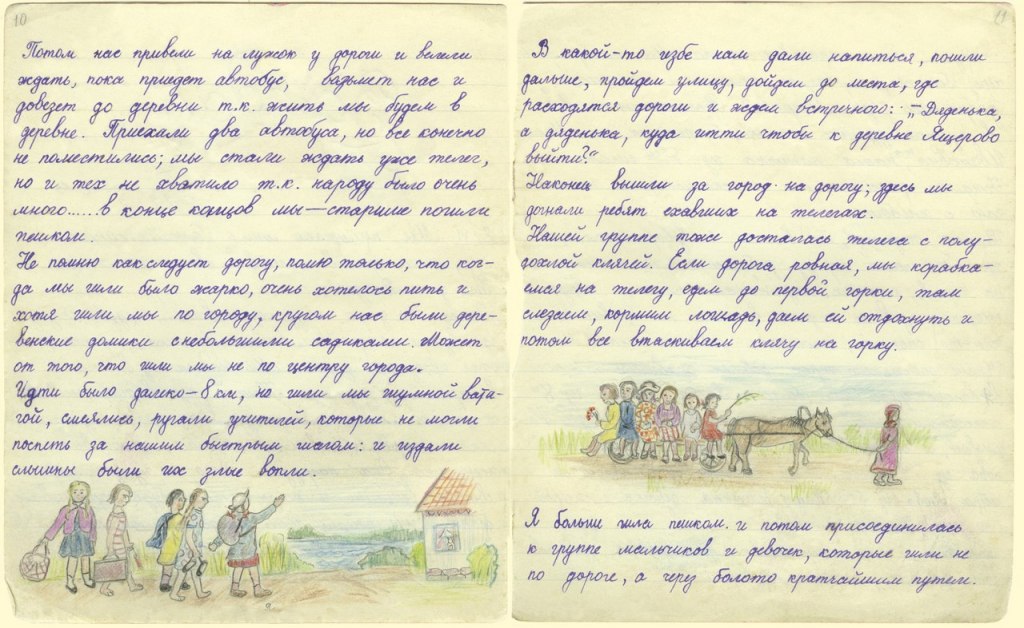 10
Потом нас привели на лужок у дороги и велели
ждать, пока приедет автобус, возьмет нас и
довезет до деревни т.к. жить мы будем в
деревне. Приехали два автобуса, но все конечно
не поместились; мы стали ждать уже телег,
но и тех не хватило т.к. народу было очень
много......в конце концов мы—старшие пошли
пешком.
Не помню как следует дорогу, помню только, что ког-
да мы шли было жарко, очень хотелось пить и
хотя шли мы по городу, кругом нас были дере-
венские домики с небольшими садиками. Может
от того, что шли мы не по центру города.
Идти было далеко—8 км, но шли мы шумной вата-
гой, смеялись, ругали учителей, которые не могли
поспеть за нашим быстрым шагом: и издали
слышны были их злые вопли.
11
В какой-то избе нам дали напиться, пошли
дальше, пройдем улицу, дойдем до места, где
расходятся дороги и ждем встречного: „Дяденька,
а дяденька, куда итти чтобы к деревне Ящерово
выйти?"
Наконец вышли за город на дорогу; здесь мы
догнали ребят ехавших на телегах.
Нашей группе тоже досталась телега с полу-
дохлой клячей. Если дорога ровная, мы корабка-
емся на телегу, едем до первой горки, там
слезаем, кормим лошадь, даем ей отдохнуть и
потом все втаскиваем клячу на горку.
Я больше шла пешком. и потом присоединилась
к группе мальчиков и девочек, которые шли не
по дороге, а через болото кратчайшим путем.